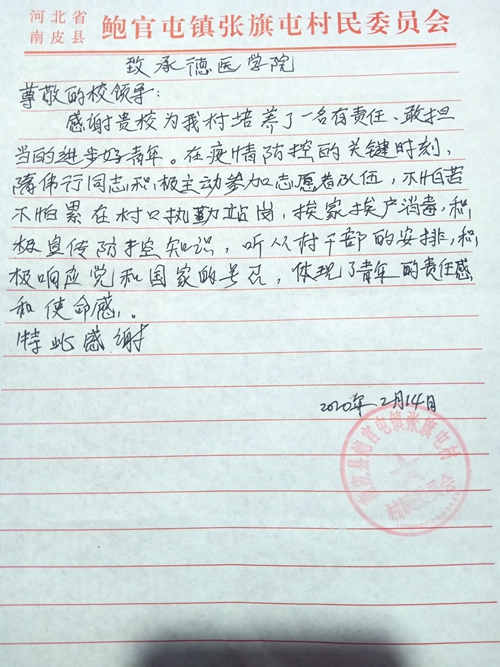 河北省
南皮县 鲍官屯镇张旗屯村民委员会
致承德医学院
尊敬的校领导:
感谢贵校为我村培养了一名有责任、敢担
当的进步好青年。在疫情防控的关键时刻,
隋伟行同志积极主动参加志愿者队伍,不怕苦
不怕累在村口执勤站岗,挨家挨户消毒,积
极宣传防控知识,听从村干部的安排,积
极响应党和国家的号召,体现了青年的责任感
和使命感。
特此感谢
2020年2月14日
南皮县鲍官屯镇张旗屯村
村民委员会